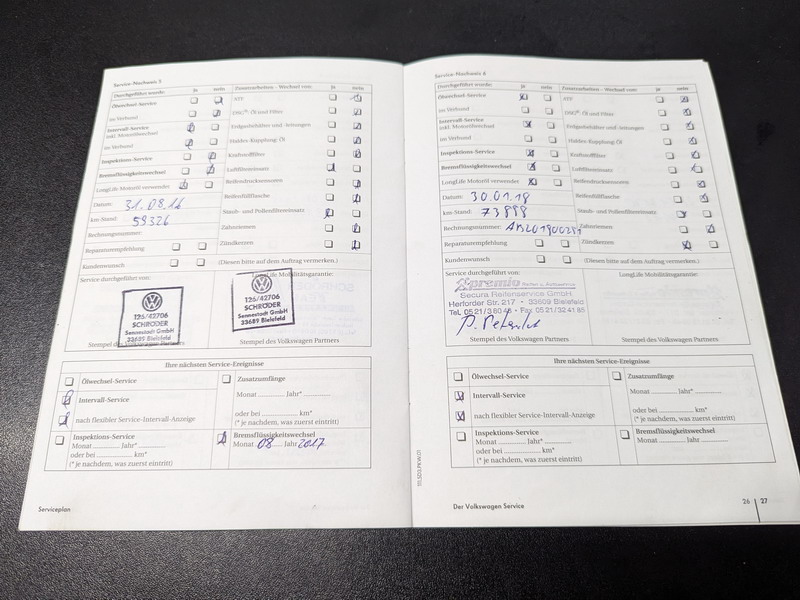 Service-Nachweis 5
Durchgeführt wurde: Ja nein
Ölwechsel-Service
im Verbund
Intervall-Service
inkl. Motorölwechsel
im Verbund
Inspektions-Service
Bremsflüssigkeitswechsel
LongLife Motoröl verwendet
Datum: 31.08.16
km-Stand: 59326
Rechnungsnummer:
Reparaturempfehlung
Kundenwunsch
Zusatzarbeiten - Wechsel von: Ja nein
ATF
DSG®: Öl und Filter
Erdgasbehälter und -leitungen
Haldex-Kupplung: Öl
Kraftstofffilter
Luftfiltereinsatz
Reifendrucksensoren
Reifenfüllflasche
Staub- und Pollenfiltereinsatz
Zahnriemen
Zündkerzen
(Diesen bitte auf dem Auftrag vermerken.)
Service durchgeführt von:
LongLife Mobilitätsgarantie:
126/42706
SCHRÖDER
Sennestadt GmbH
33689 Bielefeld
126/42706
SCHRÖDER
Sennestadt GmbH
33689 Bielefeld
Stempel des Volkswagen Partners
Stempel des Volkswagen Partners
Ihre nächsten Service-Ereignisse
Ölwechsel-Service
Intervall-Service
nach flexibler Service-Intervall-Anzeige
Inspektions-Service
Monat Jahr*
oder bei km*
(* je nachdem, was zuerst eintritt)
Zusatzumfänge
Monat Jahr*
oder bei km*
(* je nachdem, was zuerst eintritt)
Bremsflüssigkeitswechsel
Monat 08 Jahr 2017
Serviceplan
Service-Nachweis 6
Durchgeführt wurde: Ja nein
Ölwechsel-Service
im Verbund
Intervall-Service
inkl. Motorölwechsel
im Verbund
Inspektions-Service
Bremsflüssigkeitswechsel
LongLife Motoröl verwendet
Datum: 30.01.18
km-Stand: 73898
Rechnungsnummer:
Reparaturempfehlung
Kundenwunsch
Zusatzarbeiten - Wechsel von: Ja nein
ATF
DSG®: Öl und Filter
Erdgasbehälter und -leitungen
Haldex-Kupplung: Öl
Kraftstofffilter
Luftfiltereinsatz
Reifendrucksensoren
Reifenfüllflasche
Staub- und Pollenfiltereinsatz
Zahnriemen
Zündkerzen
(Diesen bitte auf dem Auftrag vermerken.)
Service durchgeführt von:
LongLife Mobilitätsgarantie:
premio Reifen + Autoservice
Secura Reifenservice GmbH
Herforder Str. 217 · 33609 Bielefeld
Stempel des Volkswagen Partners
Stempel des Volkswagen Partners
Ihre nächsten Service-Ereignisse
Ölwechsel-Service
Intervall-Service
nach flexibler Service-Intervall-Anzeige
Inspektions-Service
Monat Jahr*
oder bei km*
(* je nachdem, was zuerst eintritt)
Zusatzumfänge
Monat Jahr*
oder bei km*
(* je nachdem, was zuerst eintritt)
Bremsflüssigkeitswechsel
Monat Jahr
Der Volkswagen Service
26 27